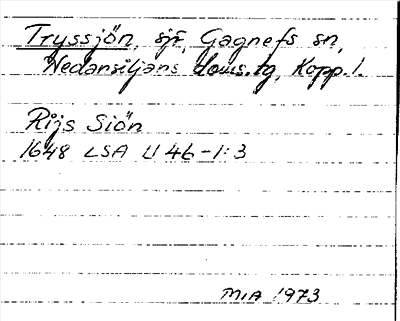 Tryssjön, sjö, Gagnefs sn,
Nedansiljans doms.tg, Kopp.l.
Rijs Siön
1648 LSA U 46-1:3
MIA 1973